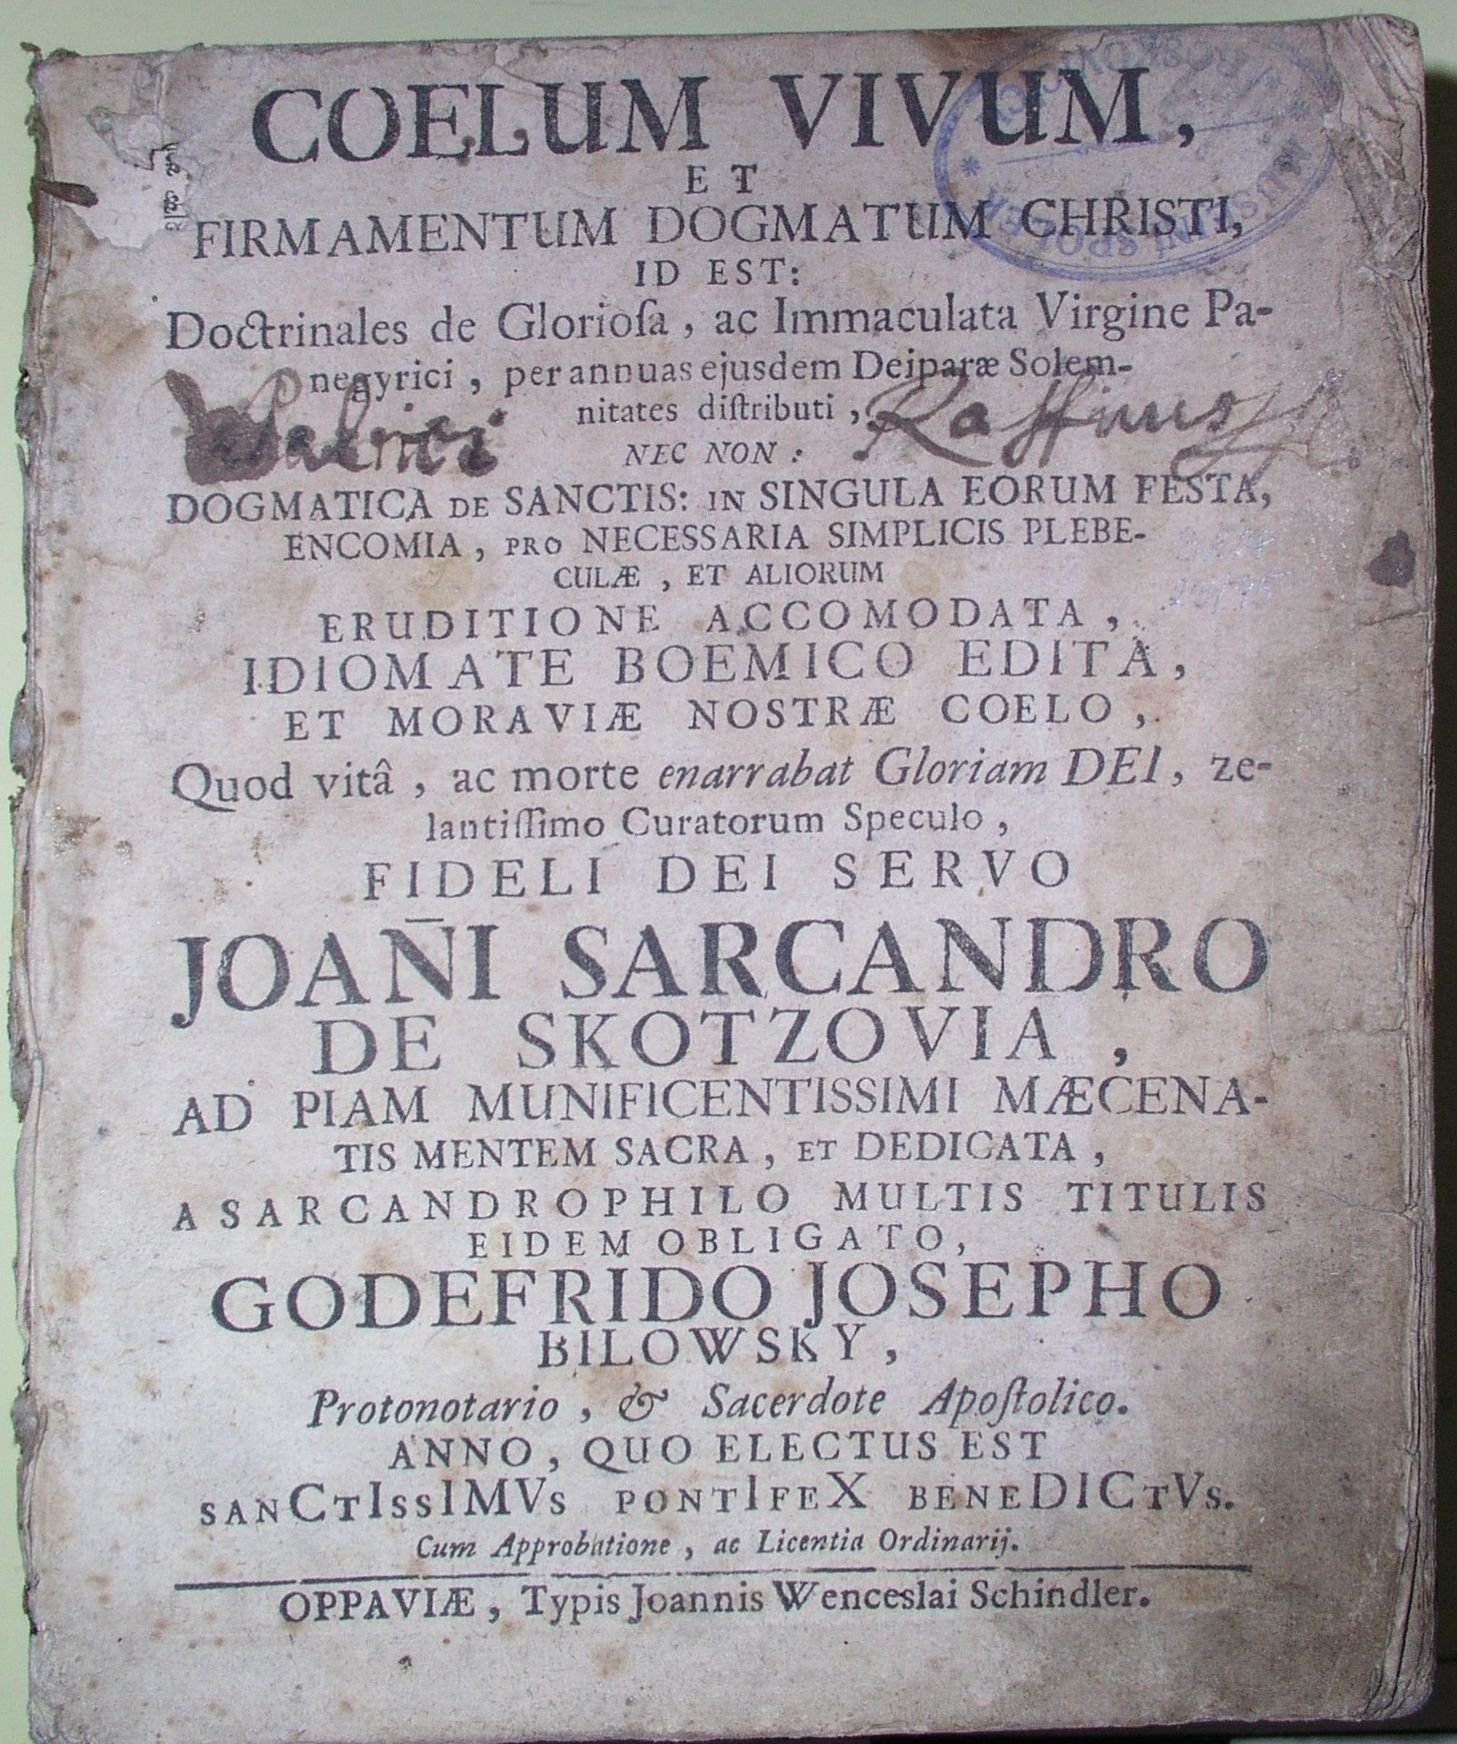 COELUM VIVUM,
ET
FIRMAMENTUM DOGMATUM CHRISTI,
ID EST:
Doctrinales de Glorioſa, ac Immaculata Virgine Pa-
negyrici, per annuas ejusdem Deiparæ Solem-
nitates diſtributi,
NEC NON:
DOGMATICA DE SANCTIS: IN SINGULA EORUM FESTA,
ENCOMIA, PRO NECESSARIA SIMPLICIS PLEBE-
CULÆ, ET ALIORUM
ERUDITIONE ACCOMODATA,
IDIOMATE BOEMICO EDITA,
ET MORAVIÆ NOSTRÆ COELO,
Quod vitâ, ac morte enarrabat Gloriam DEI, ze-
lantiſſimo Curatorum Speculo,
FIDELI DEI SERVO
JOAN̄I SARCANDRO
DE SKOTZOVIA,
AD PIAM MUNIFICENTISSIMI MÆCENA-
TIS MENTEM SACRA, ET DEDICATA,
A SARCANDROPHILO MULTIS TITULIS
EIDEM OBLIGATO,
GODEFRIDO JOSEPHO
BILOWSKY,
Protonotario, & Sacerdote Apoſtolico.
ANNO, QUO ELECTUS EST
sanCtIssIMVs pontIfeX beneDICtVs.
Cum Approbatione, ac Licentia Ordinarij.
OPPAVIÆ, Typis Joannis Wenceslai Schindler.